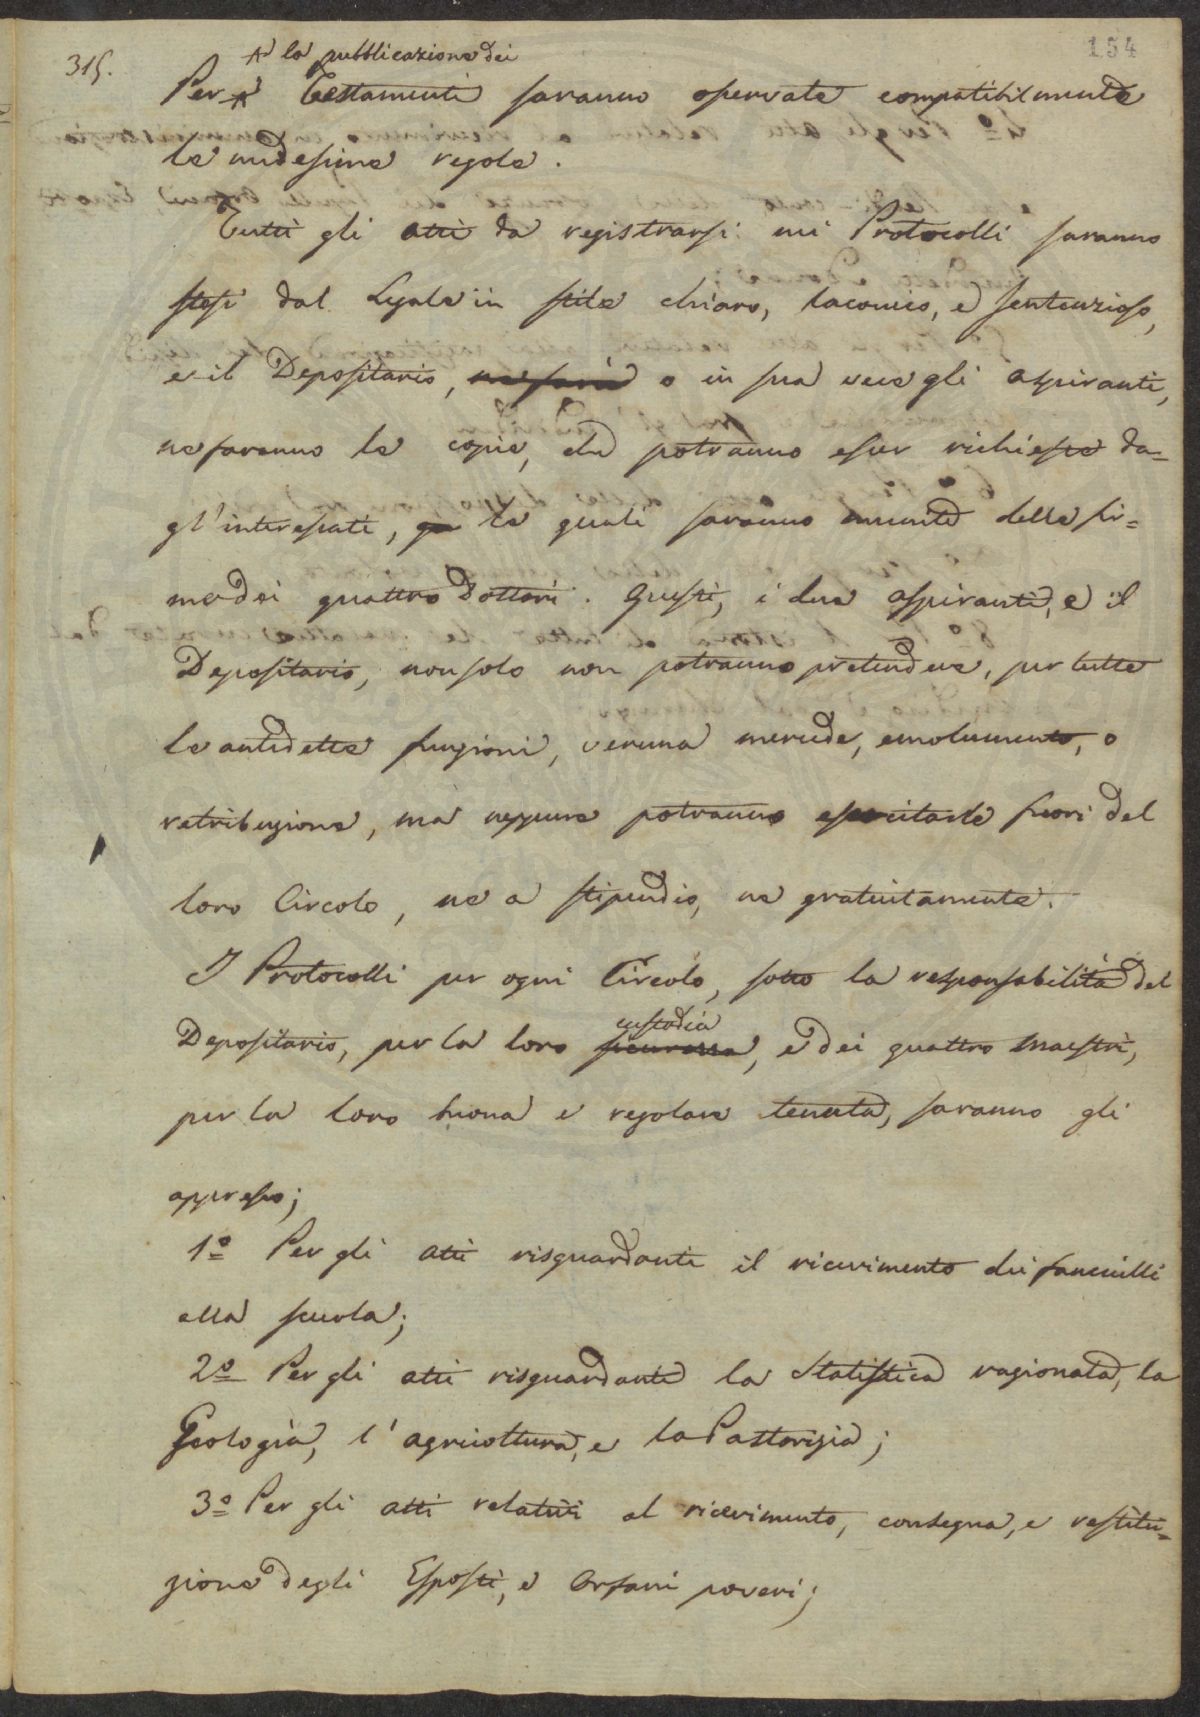 315.
154
A la pubblicazione dei
Per A Testamenti saranno osservate compatibilmente
le medesime regole.
Tutti gli atti da registrarsi nei Protocolli saranno
stesi dal Legale in stile chiaro, laconico, e sentenzioso,
e il Depositario, ne farà o in sua vece gli aspiranti,
ne faranno le copie, che potranno esser richieste da=
gl'interessati, qu le quali saranno munite della fir=
ma dei quattro Dottori. Questi, i due aspiranti, e il
Depositario, non solo non potranno pretendere, per tutte
le antidette funzioni, veruna mercede, emolumento, o
retribuzione, mà neppure potranno esercitarle fuori del
loro Circolo, ne a stipendio, ne gratuitamente.
I Protocolli per ogni Circolo, sotto la responsabilità del
custodia
Depositario, per la loro sicurezza, e dei quattro Maestri,
per la loro buona e regolare tenuta, saranno gli
appresso;
1º Per gli atti risguardanti il ricevimento dei fanciulli
alla scuola;
2º Per gli atti risguardanti la Statistica ragionata, la
Geologia, l'agricoltura, e la Pastorizia;
3º Per gli atti relativi al ricevimento, consegna, e restitu=
zione degli Esposti, e Orfani poveri;